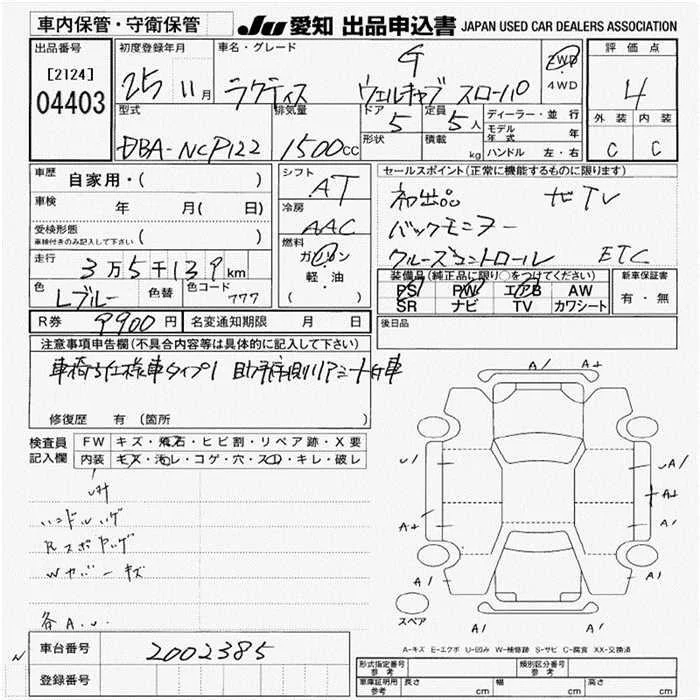 車内保管・守衛保管
JU 愛知 出品申込書 JAPAN USED CAR DEALERS ASSOCIATION
出品番号
[2124]
04403
初度登録年月
25 11月
車名・グレード
G
ラクティス ウェルキャブ スローパ
2WD
4WD
評価点
4
外装 内装
C C
型式
DBA-NCP122
排気量
1500cc
ドア 5
形状
定員 5人
積載 kg
ディーラー・並行
モデル年式 年
ハンドル 左・右
車歴 自家用・( )
車検 年 月( 日)
受検形態
車検付きのみ記入して下さい ( )
走行 3万5千139km
色 Lブルー 色替
色コード 777
シフト AT
冷房 AAC
燃料
ガソリン
軽・油
( )
セールスポイント(正常に機能するものに限ります)
初出品 ナビTV
バックモニター
クルーズコントロール ETC
装備品(純正品に限り○をつけてください)
PS PW エアB AW
SR ナビ TV カワシート
新車保証書
有・無
R券 9900円 名変通知期限 月 日
後日品
注意事項申告欄(不具合内容等は具体的に記入して下さい)
車椅子仕様車タイプ1
修復歴 有 (箇所 )
検査員記入欄
FW キズ・飛石・ヒビ割・リペア跡・X要
内装 キズ・汚れ・コゲ・穴・スレ・キレ・破レ
ハンドルハゲ
各A.U.
A1 A1
U1 A1
A+ A+
A1 A1
A1 A1
スペア
A-キズ E-エクボ U-凹み W-補修跡 S-サビ C-腐食 XX-交換済
車台番号 2002385
登録番号
形式指定番号 参考
類別区分番号 参考
車庫証明用 参考 長さ cm 幅 cm 高さ cm